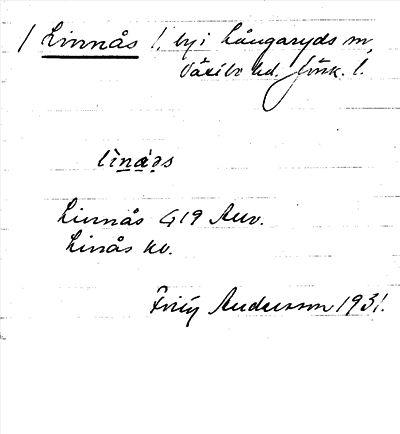 / Linnås /, by i Långaryds sn,
Västbo hd. Jönk. l.
Linnås G 19 Auv.
Linås kv.
Andersson 1931.